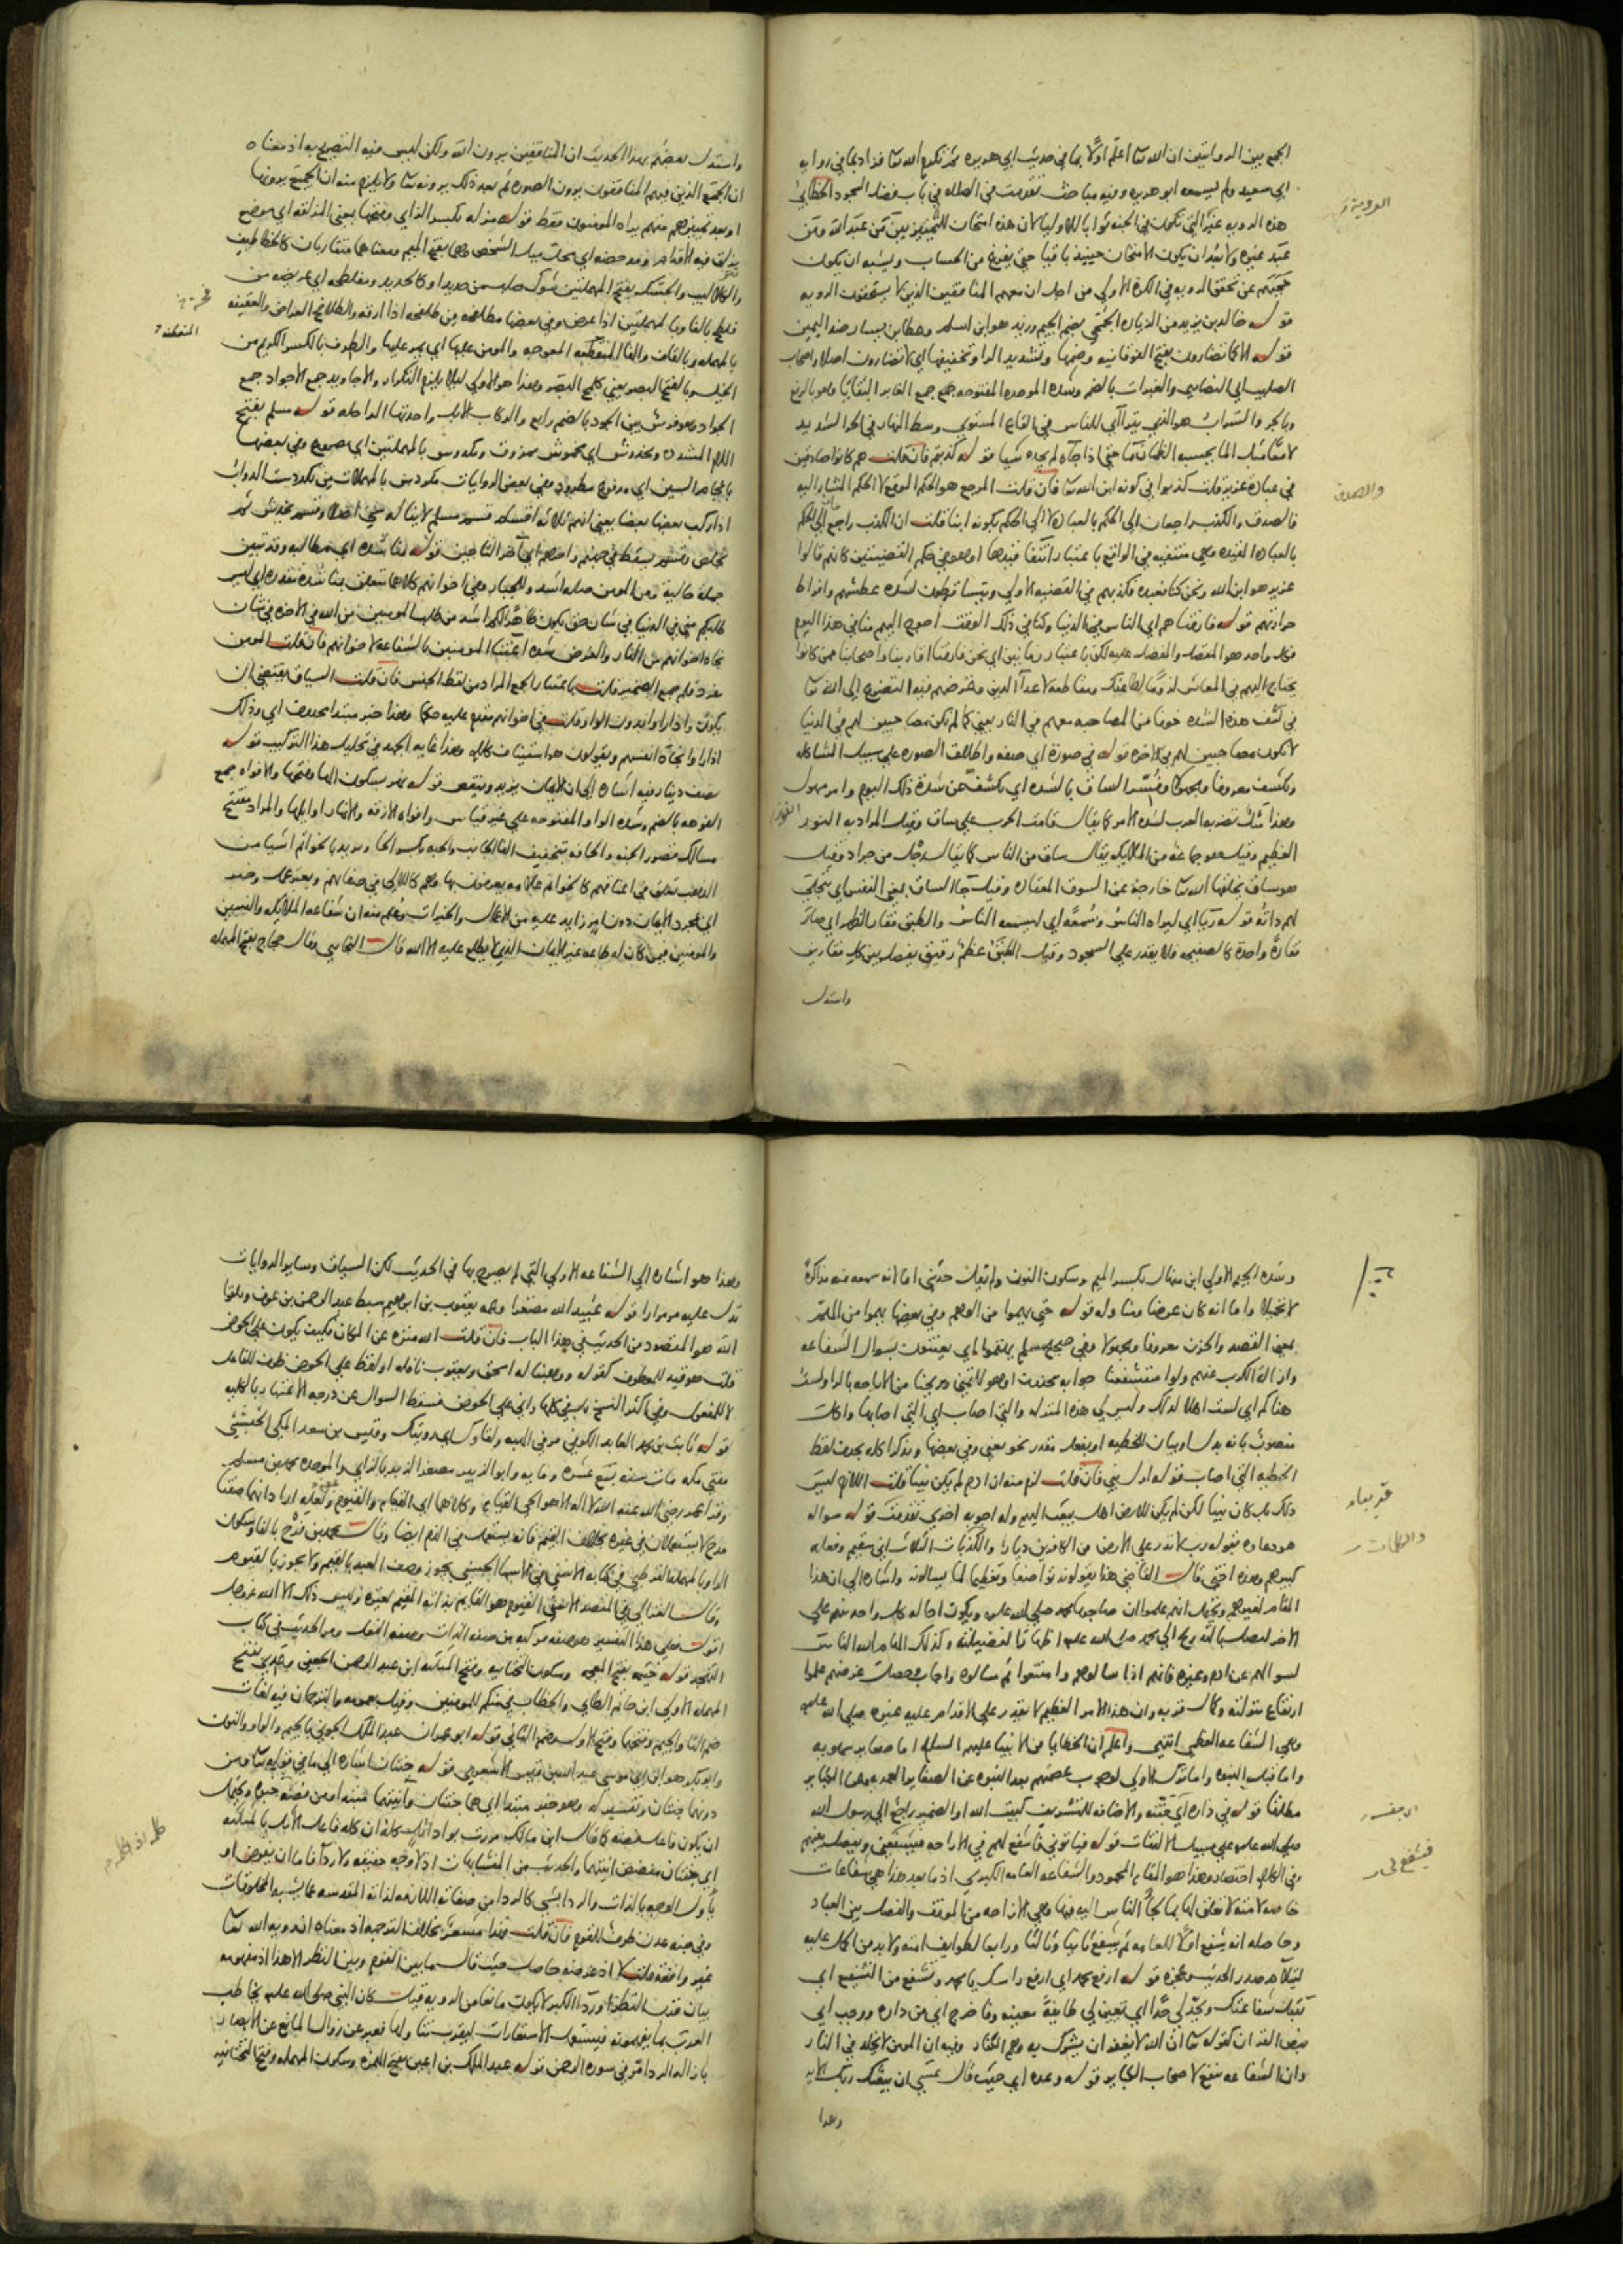 الجمع بين الروايتين ان الله تعا اعلم اولًا بما في حديث ابي هريره ثم تكرم الله تعا فزاد بما في روايه
ابي سعيد ولم يسمعه ابو هريره وفيه مباحث تقدمت في الصلاه في باب فضل السجود الخطابي
هذه الرويه غير التي تكون في الجنه ثوابا للاوليا لان هذه امتحان للتمييز بين من عبد الله ومن
عبد غيره ولا بعد ان يكون الامتحان حينيذ باقيا حتي يفرغ من الحساب ويشبه ان يكون
حجبهم عن تحقق الرويه في الكرة الاولي من اجل ان معهم المنافقين الذين لا يستحقون الرويه
قوله خالد بن يزيد من الزياده الجمحي بضم الجيم وزيد هو ابن اسلم وعطا بن يسار ضد اليمين
قوله الا كما تضارون بفتح الفوقانيه وضمها وتشديد الرا وتخفيفها اي لا تضارون اصلا واصحاب
الصليب اي النصاري والغبرات بالضم وشده الموحده المفتوحه جمع جمع الغابر البقايا وهو بالرفع
وبالجر والسراب هو الذي يترااي للناس في القاع المستوي وسط النهار في الحر الشديد
لامعا مثل الما يحسبه الظمان ما حتي اذا جاه لم يجده شيا قوله كذبتم فان قلت هم كانوا صادقين
في عباده عزير قلت كذبوا في كونه ابن الله تعا فان قلت المرجع هو الحكم الموقع لا الحكم المشار اليه
فالصدق والكذب راجعان الي الحكم بالعباده لا الي الحكم بكونه ابنا قلت ان الكذب راجع الي الحكم
بالعباده المقيده وهي منتفيه في الواقع باعتبار انتفا قيدها او هو في حكم القضيتين كانهم قالوا
عزير هو ابن الله ونحن كنا نعبده فكذبهم في القضيه الاولي ويتساقطون لشده عطشهم وافراط
حرارتهم قوله فارقنا هم اي الناس في الدنيا وكنا في ذلك الوقت احوج اليهم منا في هذا اليوم
فكل واحد هو المفضل والمفضل عليه لكن باعتبار زمانين اي نحن فارقنا اقاربنا واصحابنا ممن كانوا
يحتاج اليهم في المعاش لزومًا لطاعتك ومقاطعه لاعدآ الدين وغرضهم فيه التضرع الي الله تعا
في كشف هذه الشده خوفا من المصاحبه معهم في النار يعني كما لم نكن مصاحبين لهم في الدنيا
لا نكون مصاحبين لهم في الاخره قوله في صورة اي صفه واطلاق الصوره علي سبيل المشاكله
ويكشف معروفا ومجهولا وفسر الساق بالشده اي يكشف عن شدة ذلك اليوم وامر مهول
وهذا مثل تضربه العرب لشده الامر كما يقال قامت الحرب علي ساق وقيل المراد به النور
العظيم وقيل هو جماعة من الملايكه يقال ساق من الناس كما يقال رجل من جراد وقيل
هو ساق يخلقها الله تعا خارجة عن السوق المعتاده وقيل جا الساق بمعني النفس اي يتجلي
لهم ذاته قوله ريآ اي ليراه الناس وسمعة اي ليسمعه الناس والطبق فقار الظهر اي صار
فقارةً واحدة كالصفيحه فلا يقدر علي السجود وقيل الطبق عظم رقيق يفصل بين كل فقارين
واستدل
واستدل بعضهم بهذا الحديث ان المنافقين يرون الله ولكن ليس فيه التصريح به اذ معناه
ان الجمع الذين فيهم المنافقون يرون الصوره ثم بعد ذلك يرونه تعا ولا يلزم منه ان الجميع يرونها
او بعد تمييزهم منهم يراه المومنون فقط قوله مزله بكسر الزاي وفتحها بمعني المزلقه اي موضع
يزلق فيه الاقدام ومدحضه اي محل ميل الشخص وهما بفتح الميم ومعناهما متقاربان كالخطاطيف
والكلاليب والحسك بفتح المهملتين شوك صلب من حديد او كالحديد ومفلطحه اي عريضه من
فلطح بالفا وبالمهملتين اذا عرض وفي بعضها مطلفحه من طلفحه اذا ارقه والطلافح العراض والعقيفه
بالمهمله وبالقاف والفا المنعطفه المعوجه والمومن عليها اي يمر عليها والطرف بالكسر الكريم من
الخيل وبالفتح البصر يعني كلمح البصر وهذا هو الاولي ليلا يلزم التكرار والاجاويد جمع الاجواد جمع
الجواد وهو فرس بين الجود بالضم رايع والركاب الابل واحدتها الراحله قوله مسلم بفتح
اللام المشدده ومخدوش اي مخموش ممزوق ومكدوس بالمهملتين اي مصروع وفي بعضها
باعجام السين اي مدفوع مطرود وفي بعض الروايات مكردس بالمهملات من تكردست الدواب
اذا ركب بعضها بعضا يعني انهم ثلاثه اقسام قسم مسلم لا يناله شي اصلا وقسم يخدش ثم
يخلص وقسم يسقط في جهنم واخرهم اي آخر الناجين قوله لنا شده اي مطالبه وقد تبين
جمله حاليه ومن المومن صله اشد وللجبار وفي اخوانهم كلاهما متعلق بمناشده مقدره اي ليس
طلبكم مني في الدنيا في شان حق يكون ظاهرًا لكم اشد من طلب المومنين من الله في الاخره في شان
نجاه اخوانهم من النار والغرض شده اعتنا المومنين بالشفاعه لاخوانهم فان قلت المومن
مفرد فلم جمع الضمير قلت باعتبار الجمع المراد من لفظ الجنس فان قلت السياق يقتضي ان
يكون واذا راوا بدون الواو قلت في اخوانهم مقدم عليه حكما وهذا خبر مبتدا محذوف اي وذلك
اذا راوا نجاة انفسهم ويقولون هو استيناف كلام وهذا غايه الجهد في تحليل هذا التركيب قوله
نصف دينار فيه اشاره الي ان الايمان يزيد وينقص قوله نهر بسكون الها وفتحها والافواه جمع
الفوهه بالضم وشده الواو المفتوحه علي غير قياس وافواه الازقه والانهار اوايلها والمراد مفتتح
مسالك قصور الجنه والحافه بتخفيف الفا الجانب والحبه بكسر الحا ويريد بالخواتم اشيا من
الذهب تعلق في اعناقهم كالخواتم علامه يعرفون بها وهم كاللالي في صفايهم وبغير عمل وخير
اي بمجرد الايمان دون امر زايد عليه من الاعمال والخيرات وعلم منه ان شفاعه الملايكه والنبيين
والمومنين فيمن كان له طاعه غير الايمان الذي لا يطلع عليه الا الله قال البخاري وقال حجاج بفتح المهمله
وشده الجيم الاولي ابن منهال بكسر الميم وسكون النون ولم يقل حدثني اما انه سمعه منه مذاكرةً
لا تحميلا واما انه كان عرضا ومناوله قوله حتي يهموا من الوهم وفي بعضها يهموا من الهم
بمعني القصد والحزن معروفا ومجهولا وفي صحيح مسلم يهتموا اي يعتنون بسوال الشفاعه
وازالة الكرب عنهم ولو استشفعنا جوابه محذوف او هو للتمني ويريحنا من الاراحه بالرا ولست
هناكم اي لست اهلا لذلك وليس لي هذه المنزله والتي اصاب اي التي اصابها واكله
منصوب بانه بدل او بيان للخطيه او بفعل مقدر نحو يعني وفي بعضها ويذكر اكله بحذف لفظ
الخطيه التي اصاب قوله اول نبي فان قلت لزم منه ان ادم لم يكن نبيا قلت اللازم ليس
ذلك بل كان نبيا لكن لم يكن للارض اهل يبعث اليهم وله اجوبه اخري تقدمت قوله سواله
هو دعاوه بقوله رب لا تذر علي الارض من الكافرين ديارا والكذبات الثلاث اني سقيم وفعله
كبيرهم وهذه اختي قال القاضي هذا يقولونه تواضعا وتعظيما لما يسالونه واشاره الي ان هذا
المقام لغيرهم ويحتمل انهم علموا ان صاحبها محمد صلي الله عليه ويكون احاله كل واحد منهم علي
الاخر ليصل بالتدريج الي محمد صلي الله عليه اظهارًا لفضيلته وكذلك الهام الله الناس
لسوالهم عن ادم وغيره فانهم اذا سالوهم وامتنعوا ثم سالوه واجاب وحصل غرضهم علموا
ارتفاع منزلته وكمال قربه وان هذا الامر العظيم لا يقدر علي الاقدام عليه غيره صلي الله عليه
وهي الشفاعه العظمي انتهي واعلم ان الخطايا من الانبيا عليهم السلم اما صغاير سهويه
واما قبل النبوه واما ترك الاولي لوجوب عصمتهم بعد النبوه عن الصغاير العمديه وعن الكباير
مطلقا قوله في داره اي جنته والاضافه للتشريف كبيت الله او الضمير راجع الي رسول الله
صلي الله عليه علي سبيل الالتفات قوله فياتوني فاشفع لهم في الاراحه فيستشفعني ويفصل بينهم
وفي الكلام اختصار وهذا هو المقام المحمود والشفاعه العامه الكبري اذ ما بعد هذا هي شفاعات
خاصه لامته لا تعلق لها بما لجأ الناس اليه فيها وهي الاراحه من الموقف والفصل بين العباد
وحاصله انه يشفع اولًا للعامه ثم يشفع ثانيا وثالثا ورابعا لطوايف امته ولا بد من الحمل عليه
ليتلام صدر الحديث وعجزه قوله ارفع محمد اي ارفع راسك يا محمد وتشفع من التشفيع اي
تقبل شفاعتك ويحد لي حدًا اي تعين لي طايفة معينه وفاخرج اي من داره ووجب اي
بنص القران كقوله تعا ان الله لا يغفر ان يشرك به وهم الكفار وفيه ان المومن لا يخلد في النار
وان الشفاعه تنفع لاصحاب الكباير قوله وعده اي حيث قال عسي ان يبعثك ربك الايه
وهذا
وهذا هو اشاره الي الشفاعه الاولي التي لم يصرح بها في الحديث لكن السياق وساير الروايات
تدل عليه مرمرارا قوله عبيد الله مصغرا وعمه يعقوب بن ابرهيم سبط عبد الرحمن بن عوف وتلقوا
الله هو المقصود من الحديث في هذا الباب فان قلت الله منزه عن المكان فكيف يكون علي الحوض
قلت هو قيد للمعطوف كقوله ووهبنا له اسحق ويعقوب نافله او لفظ علي الحوض ظرف للفاعل
لا للمفعول وفي اكثر النسخ بل في كلها واني علي الحوض فسقط السوال عن درجه الاعتبار بالكليه
قوله ثابت بن محمد العابد الكوفي مر في الهبه ولقاوك اي رويتك وقيس بن سعد المكي الحبشي
مفتي مكه مات سنه تسع عشره ومايه وابو الزبير مصغر الزبر بالزاي والموحده محمد بن مسلم
وقرا عمر رضي الله عنه الله لا اله الا هو الحي القيام وكلاهما اي القيام والقيوم اراد انهما صفتا
مدح لا يستعملان في غيره بخلاف القيم فانه يستعمل في الذم ايضا وقال محمد بن فرح بالفا وسكون
الرا وبالمهمله القرطبي في كتابه الاسني في الاسما الحسني يجوز وصف العبد بالقيم ولا يجوز بالقيوم
وقال الغزالي في المقصد الاسني القيوم هو القايم بذاته المقيم لغيره وليس ذلك الا الله عز وجل
اقول فعلي هذا التفسير هو صفه مركبه من صفه الذات وصفه الفعل ومر الحديث في كتاب
التهجد قوله خيثمه بفتح المعجمه وسكون التحتانيه وفتح المثلثه ابن عبد الرحمن الجعفي وعدي بفتح
المهمله الاولي ابن حاتم الطايي والخطاب في منكم للمومنين وقيل بعمومه والترجمان فيه لغات
ضم التا والجيم وفتحهما وفتح الاول وضم الثاني قوله ابو عمران عبد الملك الجوني بالجيم والواو والنون
وابو بكر هو ابن ابي موسي عبد الله بن قيس الاشعري قوله جنتان اشاره الي ما في قوله تعا ومن
دونهما جنتان وتفسير له وهو خبر مبتدا اي هما جنتان وانيتهما مبتدا ومن فضه خبره ويحتمل
ان يكون فاعل فضه كما قال ابن مالك مررت بواد اثل كله ان كله فاعل الاثل بالمثلثه
اي جنتان مفضض انيتهما والحديث من المتشابهات اذ لا وجه حقيقه ولا ردآ فاما ان يفوض او
ياول الوجه بالذات والردا بشي كالردا من صفاته اللازمه لذاته المقدسه عما يشبه المخلوقات
وفي جنه عدن ظرف للقوم فان قلت هذا مشعر بخلاف الترجمه اذ معناه ان رويه الله تعا
غير واقعه قلت لا اذ غرضه حاصل حيث قال ما بين القوم وبين النظر الا هذا اذ مفهومه
بيان قرب النظر وردآ الكبر لا يكون مانعا من الرويه قيل كان النبي صلي الله عليه يخاطب
العرب بما يفهمونه فيستعمل الاستعارات ليقرب متناولها فعبر عن زوال المانع عن الابصار
بازاله الردا مر في سوره الرحمن قوله عبد الملك بن اعين بفتح الهمزه وسكون المهمله وفتح التحتانيه